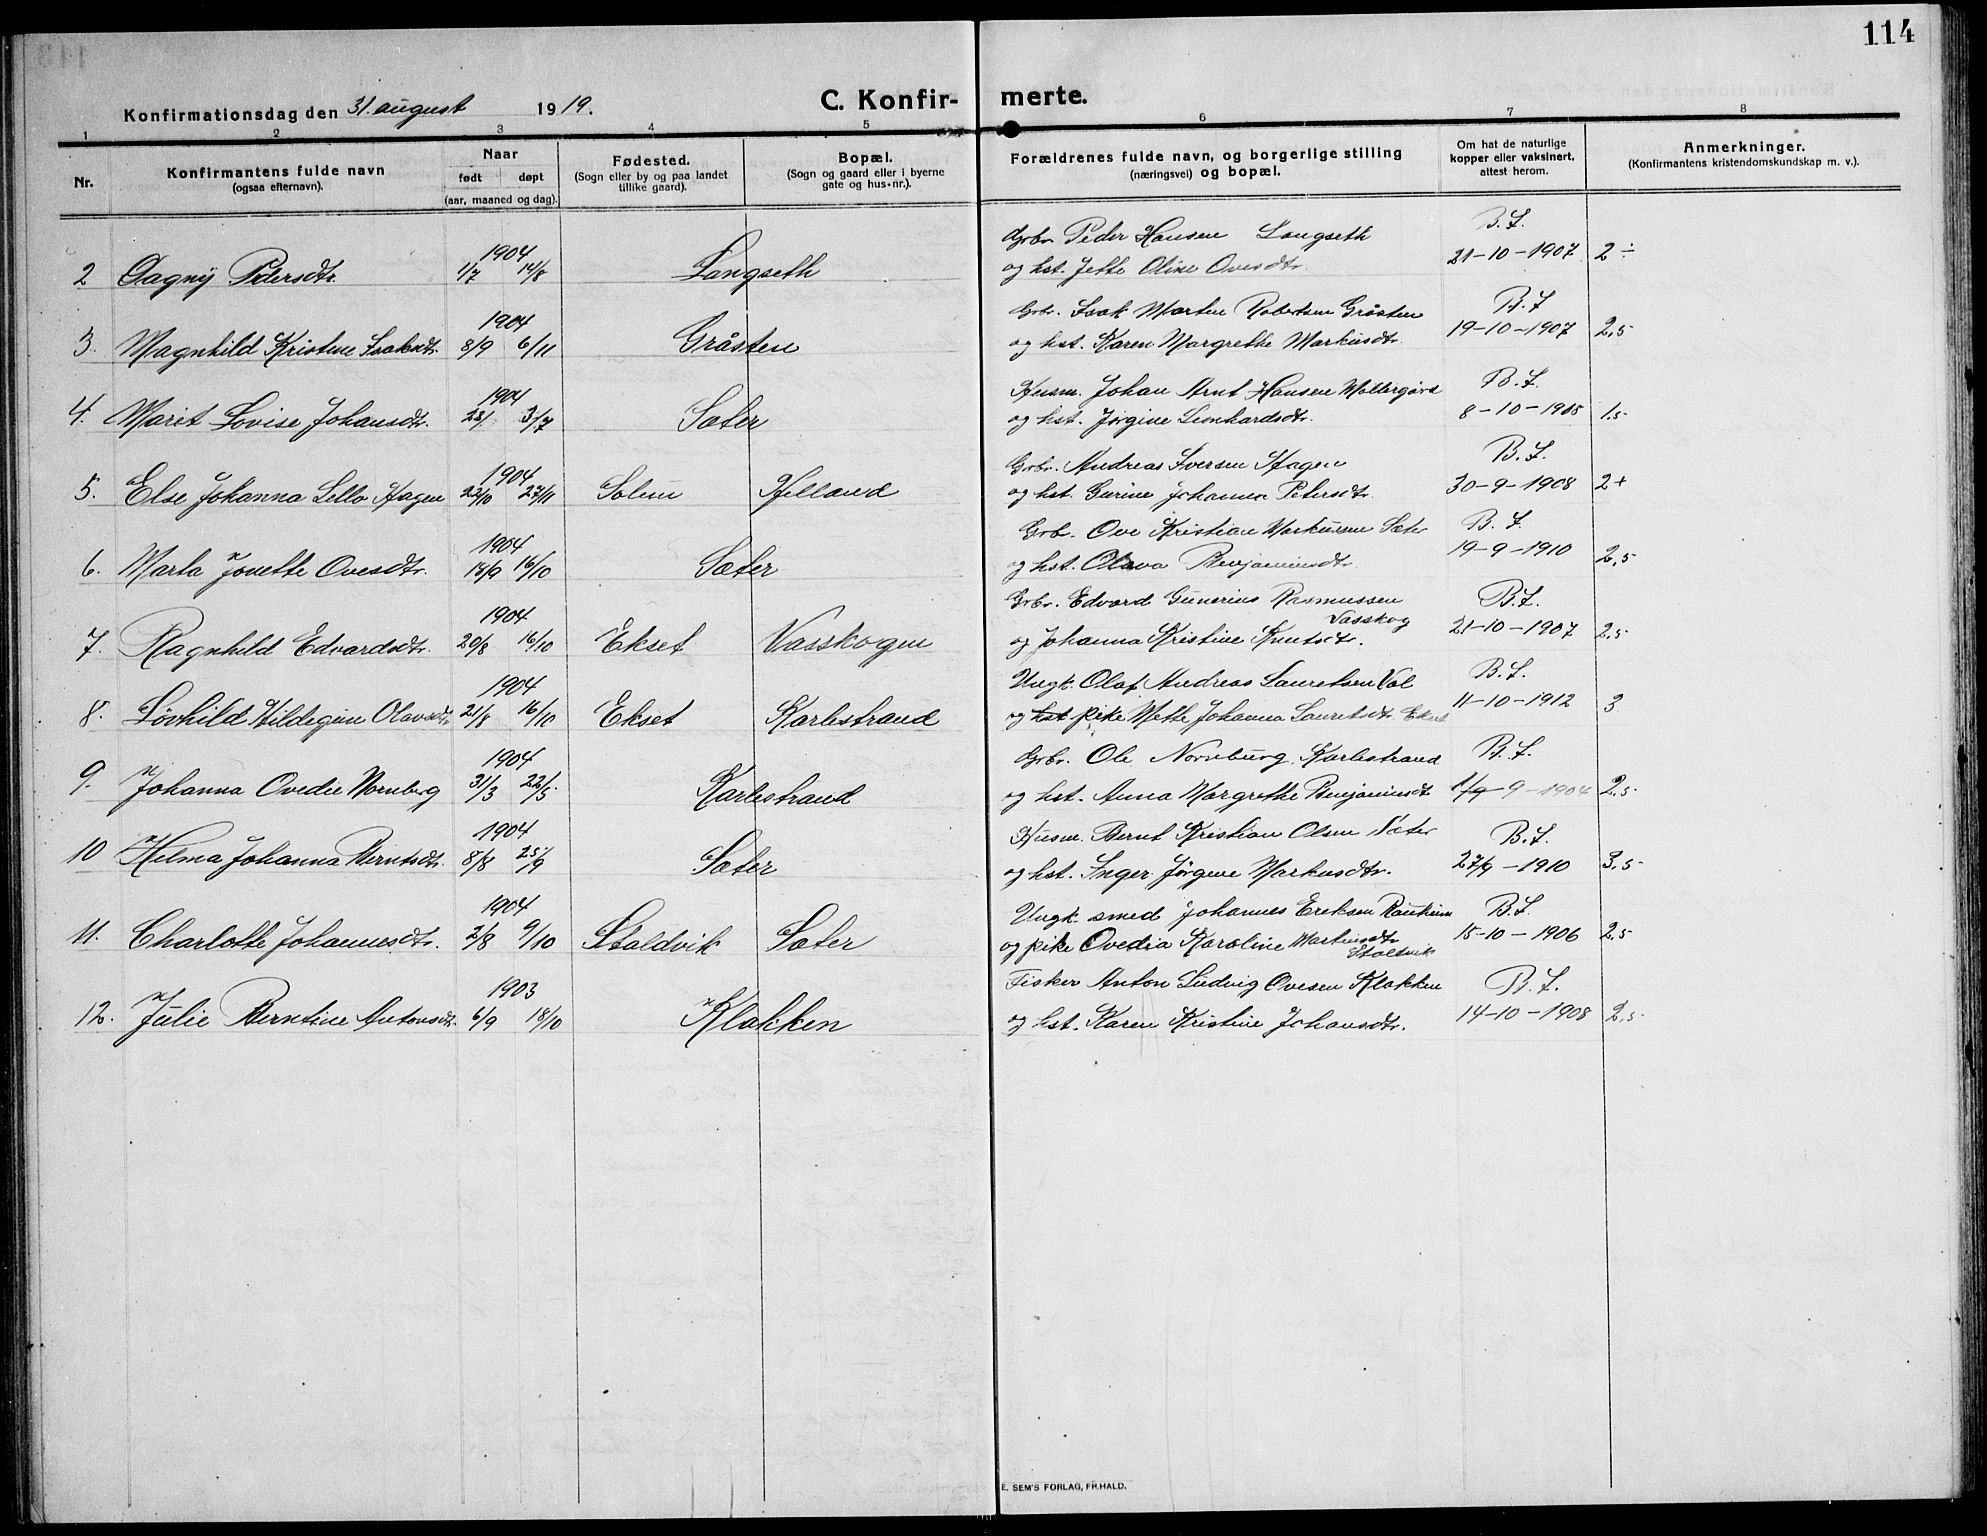 114
Konfirmationsdag den 31. august 1919.
C. Konfir- merte.
1 2 3 4 5 6 7 8
Nr.
Konfirmantens fulde navn
(ogsaa efternavn).
Naar
født døpt
(aar, maaned og dag).
Fødested.
(Sogn eller by og paa landet
tillike gaard).
Bopæl.
(Sogn og gaard eller i byerne
gate og hus-nr.).
Forældrenes fulde navn, og borgerlige stilling
(næringsvei) og bopæl.
Om hat de naturlige
kopper eller vaksinert,
attest herom.
Anmerkninger.
(Konfirmantens kristendomskundskap m. v.).
1904 Grbr. Peder Hansen Langseth B. F.
2 Dagny Pedersdtr. 1/7 14/8 Langseth og hst. Jette Oline Ovesdtr. 21-10-1907 2 ÷
1904 Grbr. Isak Martin Robertsen Gråsten B. F
3. Magnhild Kristine Isaksdtr. 8/9 6/11 Gråsten og hst. Karen Margrethe Markusdtr. 19-10-1907 2,5
1904 Husm. Johan Arnt Hansen B. F.
4. Marit Lovise Johansdtr. 3/7 Sæter og hst. Jørgine Leonhardsdtr. 8-10-1908 1.5
1904 Grbr. Andreas Iversen Hagen B. F.
5. Else Johanna Hagen 23/10 27/11 Solum Helland og hst. Gurine Johanna Petersdtr. 30-9-1908 2+
1904 Grb. Ove Kristian Markussen Sæter B. F.
6. Marta Jonette Ovesdtr. 18/9 16/10 Sæter og hst. Olava Benjaminsdtr. 19-9-1910 2,5
1904 Grbr. Edvard Gunerius Rasmussen B. F.
Vasskog
7. Ragnhild Edvardsdtr. 20/8 16/10 Ekset Vasskogen og Johanna Kristine Knutsdtr. 21-10-1907 2,5
1904 Ungk. Olaf Andreas Lauretsen Val B. F.
8. Løvhild Hildegun Olavsdtr. 21/8 16/10 Ekset Karlestrand og hst pike Mette Johanna Lauretsdtr. Ekset 11-10-1912 3
1904 Grbr. Ole Nornburg Karlestrand B. F.
9. Johanna Ovedie Nornberg 31/3 22/5 Karlestrand og hst. Anna Margrethe Benjaminsdt 9-1904 2,5
1904 Husm. Bernt Kristian Olsen Sæter B. F.
10 Helma Johanna Berntsdtr. 8/8 25/9 Sæter og hst. Inger Jørgine Markusdtr. 27/9-1910 3,5
1904 Ungk. smed Johannes Eriksen B. F.
11. Charlotte Johannesdtr. 2/8 9/10 Staldvik Sæter og pike Ovedia Karoline Martinsdtr 15-10-1906 2,5
Stoldvik
1903 Fisker Anton Ludvig Ovesen Klakken B. F.
12. Julie Berntine Antonsdtr. 6/9 18/10 Klakken og hst. Karen Kristine Johansdtr. 14-10-1908 2,5
E. SEM'S FORLAG, FR.HALD.